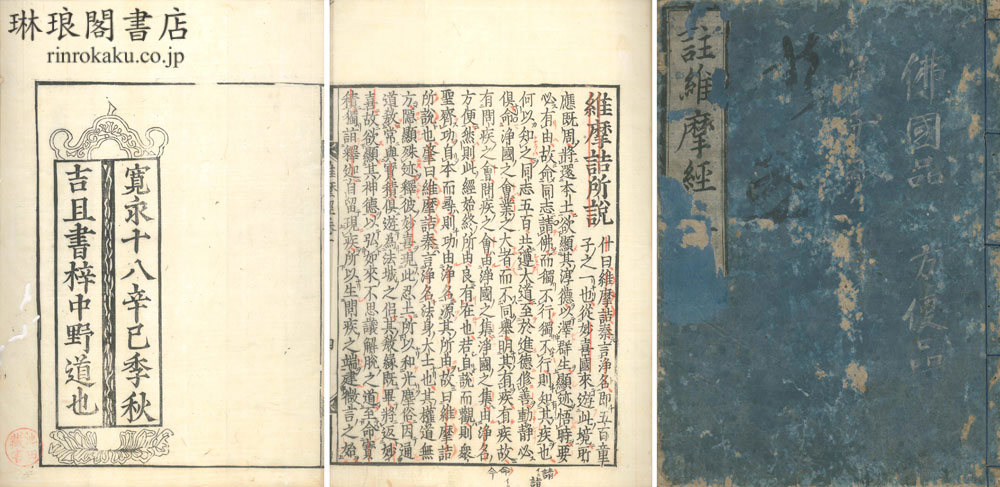 琳琅閣書店
rinrokaku.co.jp
註維摩經
佛國品
方便品
維摩詰所說
什曰維摩詰秦言淨名即五百童
子之一也從妙喜國來遊此境所
應既周將還本土欲顯其淳德以澤群生顯迹悟時要
必有由故命同志請佛而獨不行獨不行則知其疾也
何以知之同志五百共遵大道至於進德修善動靜必
俱命淨國之會業之大者而不同舉明其有疾有疾故
有問疾之會問疾之會由淨國之集淨國之集由淨名
方便然則此經始終所由良有在也若自說而觀則衆
聖齊功自本而尋則功由淨名源其所由故曰維摩詰
所說也肇曰維摩詰秦言淨名法身大士也其權道無
方隱顯殊迹釋彼妙喜現此忍土所以和光塵俗因通
道教常與寶積俱遊為法城之侶其教緣既畢將返妙
喜故欲顯其神德以弘如來不思議解脫之道至命寶
積獨詣釋迦自留現疾所以生問疾之端建微言之始
寬永十八辛巳季秋
吉旦書梓中野道也